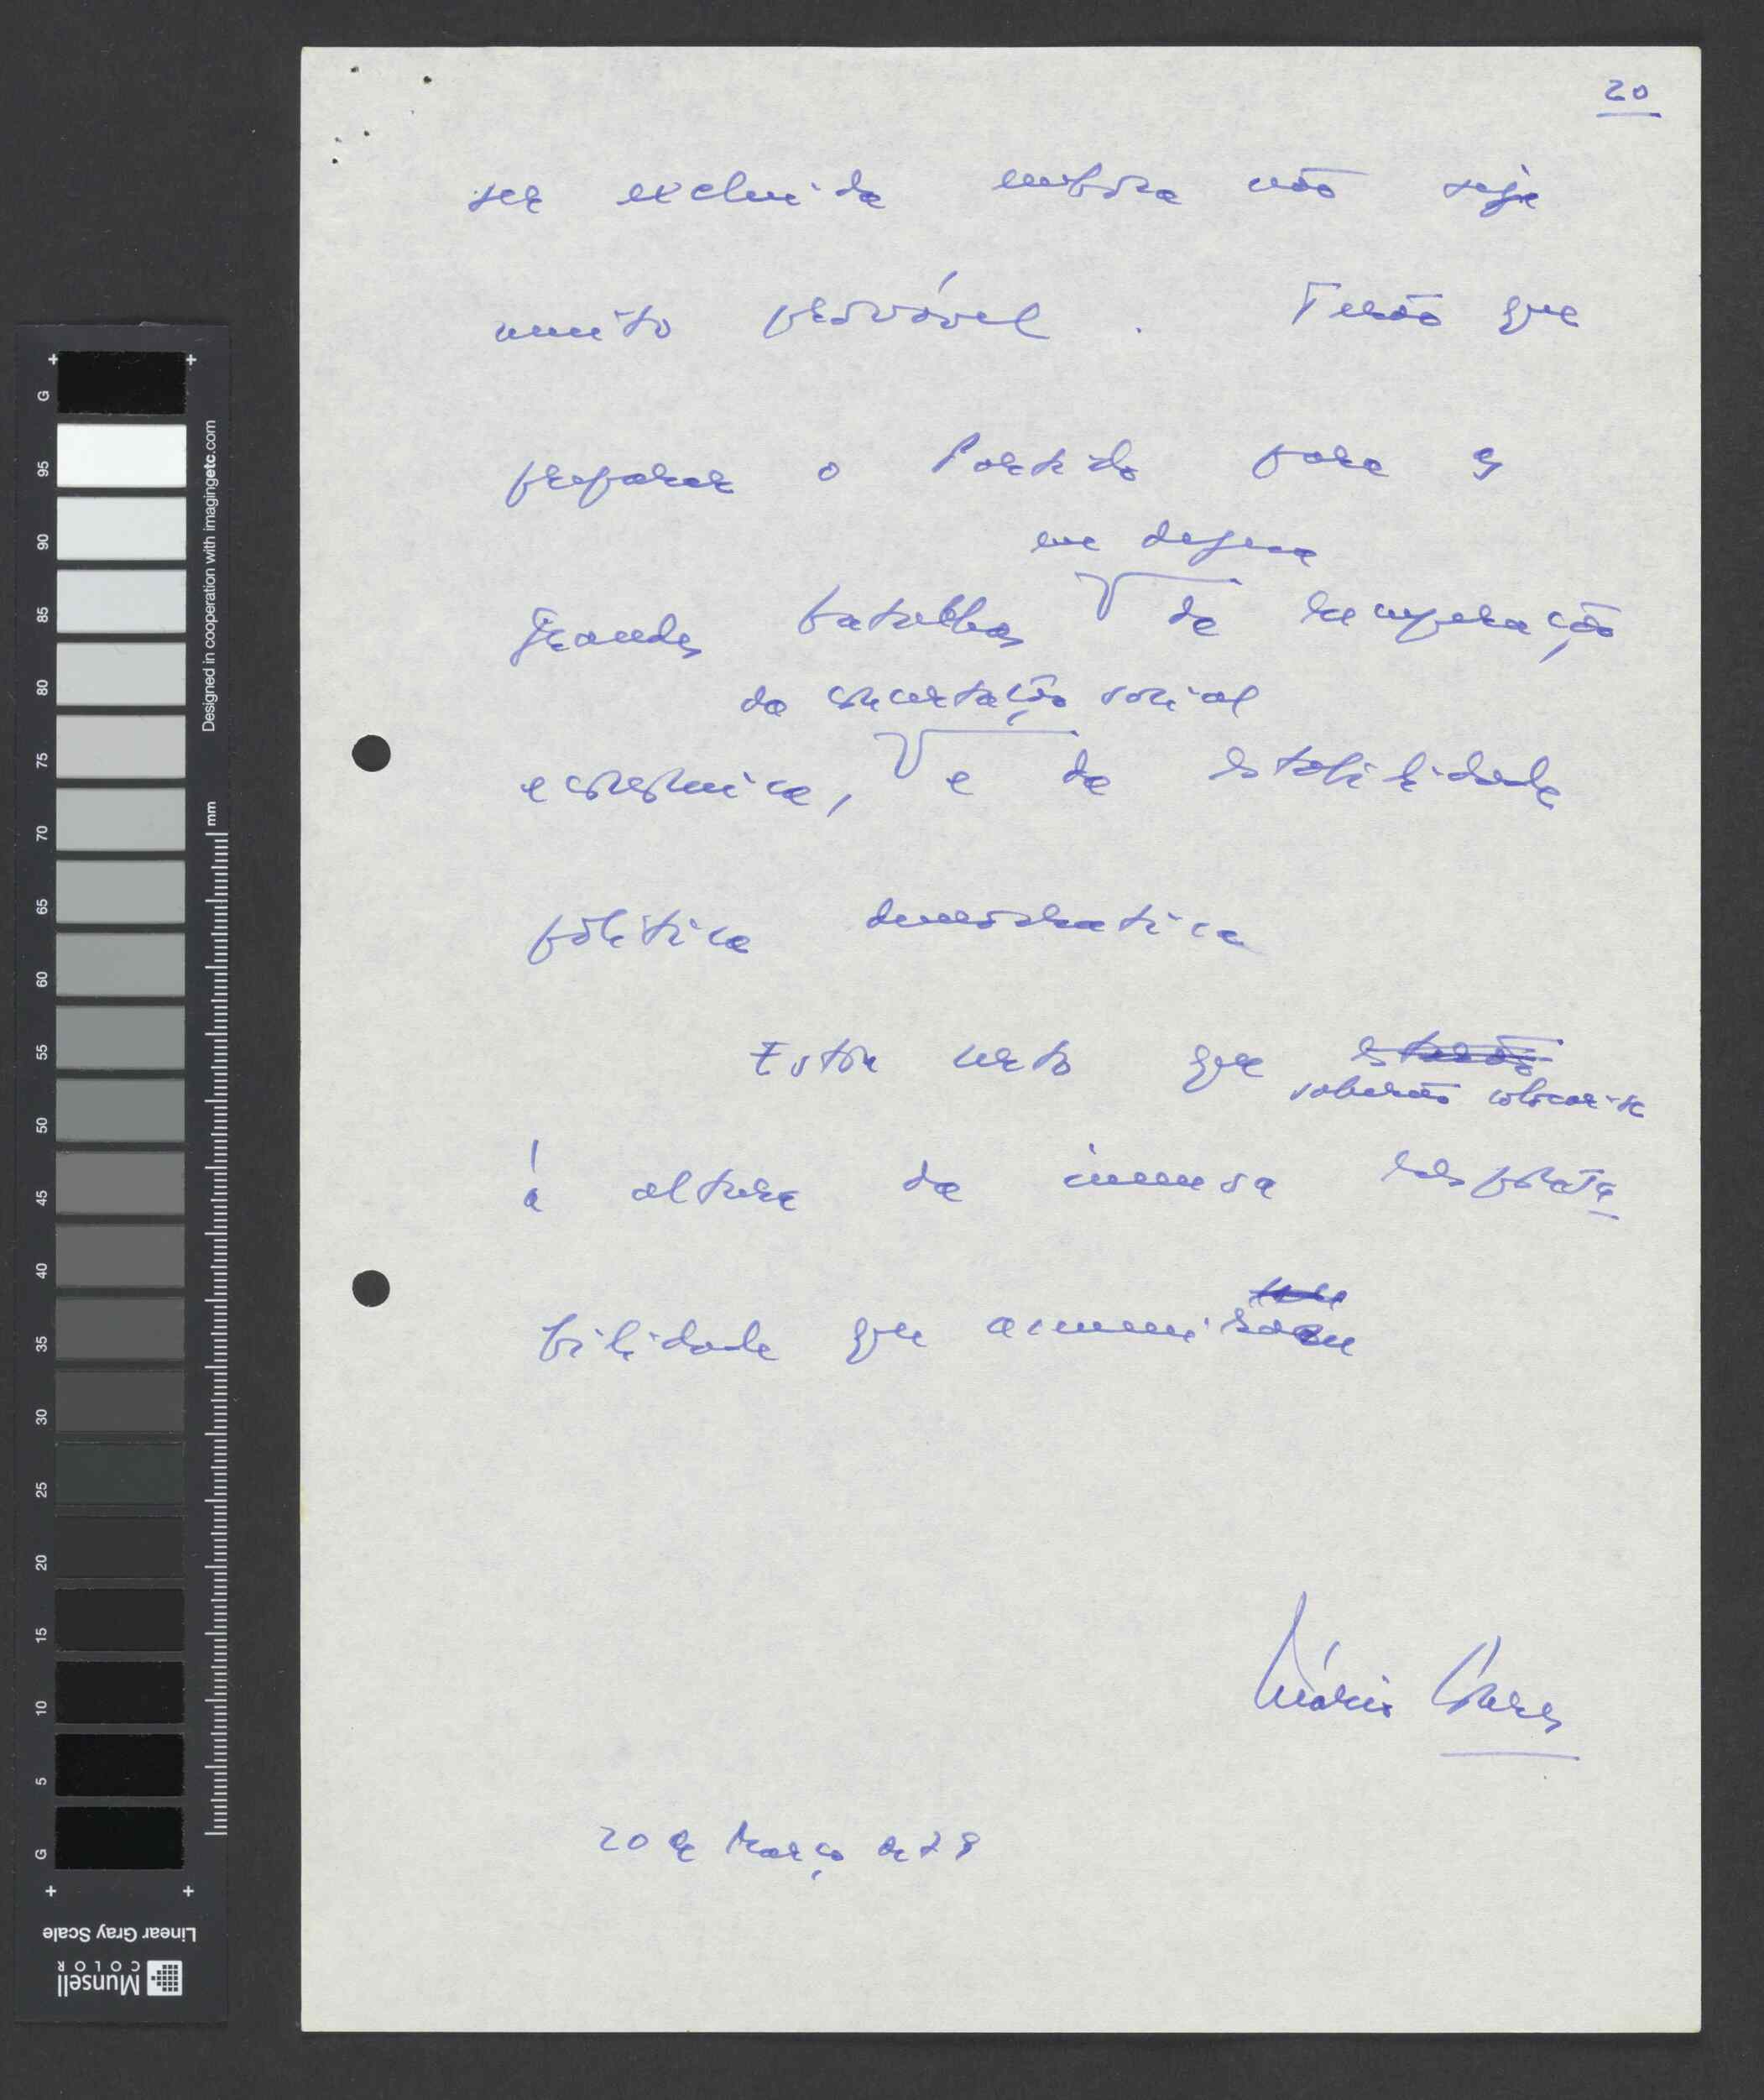 20
ser excluida embora não seja
muito provável. Terão que
preparar o Partido para as
em defesa
grandes batalhas da recuperação
da concertação social
economica, e da estabilidade
politica democratica
Estou certo que estarão
saberão colocar-se
á altura da imensa responsa
bilidade que assumiram
Mário Soares
20 de Março de 78
G
95
90
85
80
75
70
65
60
55
50
45
40
35
30
25
20
15
10
5
G
Designed in cooperation with imagingetc.com
mm
Linear Gray Scale
Munsell
COLOR